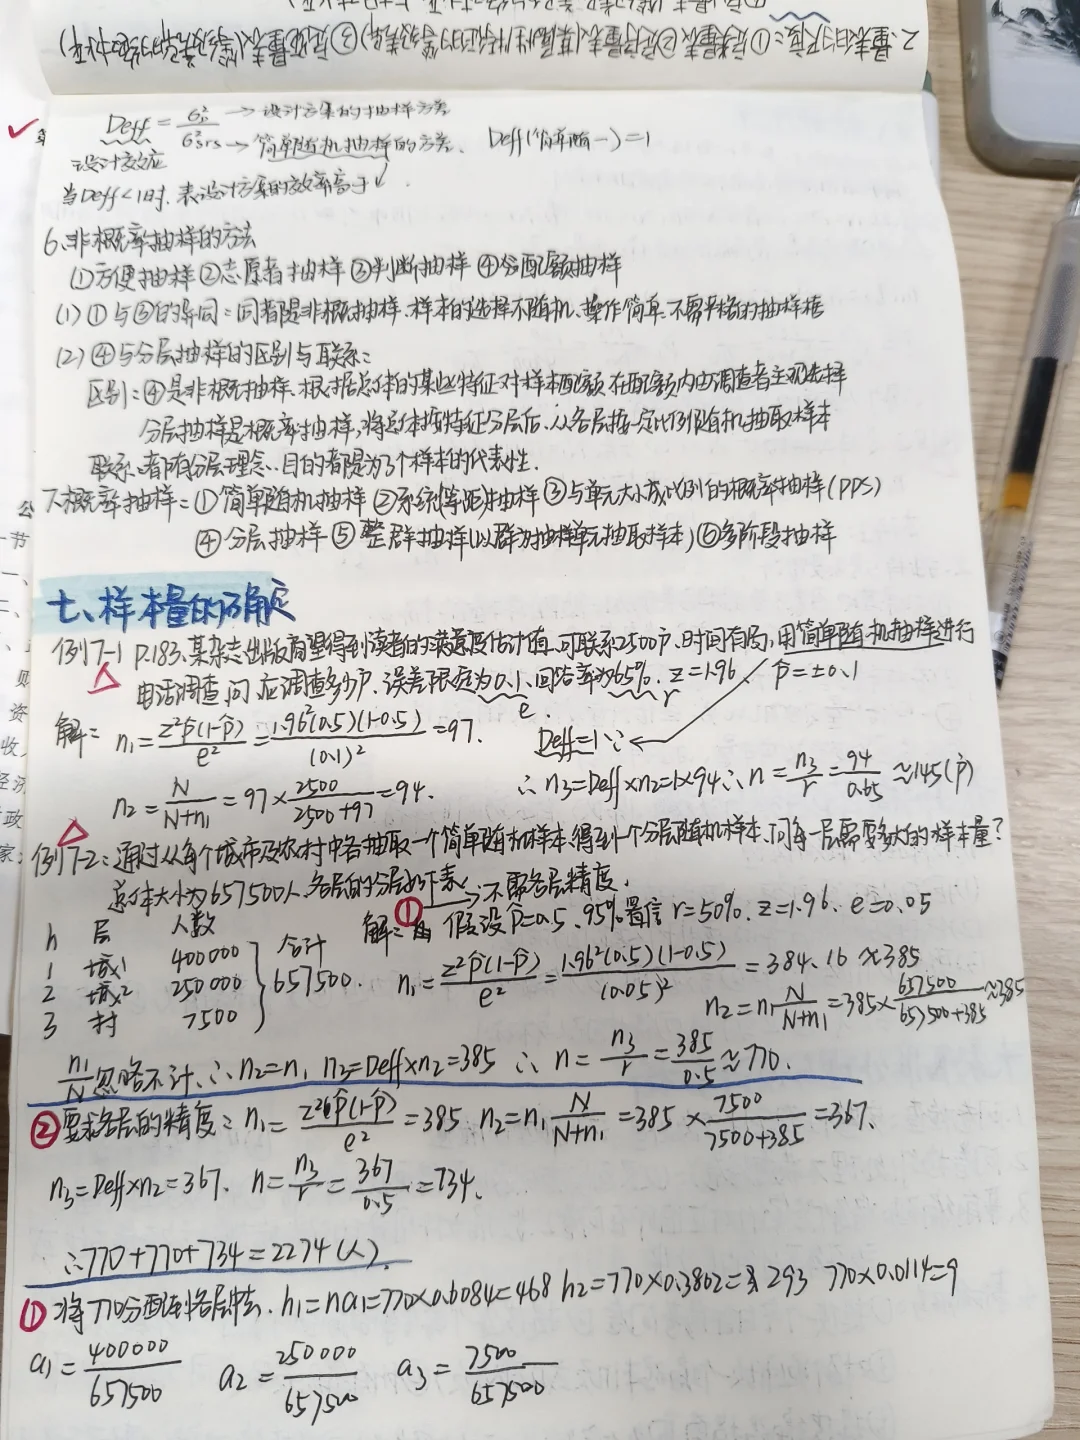 2.量表的尺度:①定类量表②定序量表(某属性特征的等级关系)③定距量表
Deff = σp² / σ²srs → 设计方案的抽样方差 → 简单随机抽样的方差. Deff(简单随一)=1
设计效应
当Deff<1时.表设计方案的效率高于↙.
6、非概率抽样的方法
①方便抽样②志愿者抽样③判断抽样④分配额抽样
(1)①与③的异同:同:都是非概抽样、样本的选择不随机、操作简单.不需严格的抽样框
(2)④与分层抽样的区别与联系:
区别:④是非概抽样、根据总体的某些特征对样本配额,在配额内由调查者主观选择
分层抽样是概率抽样,将总体按特征分层后、从各层按一定比例随机抽取样本
联系:都有分层理念.目的都是为了样本的代表性.
7.概率抽样:①简单随机抽样②系统(等距)抽样③与单元大小成比例的概率抽样(PPS)
④分层抽样⑤整群抽样(以群为抽样单元抽取样本)⑥多阶段抽样
七、样本量的确定
例7-1 P.183.某杂志出版商望得到读者的满意度估计值,可联系2500户.时间有局,用简单随机抽样进行
电话调查,问应调查多少户.误差限定为0.1、回答率为65%. z=1.96 p̂=±0.1
e r
解: n₁ = z²p̂(1-p̂)/e² = 1.96²(0.5)(1-0.5)/(0.1)² = 97. Deff=1∵
n₂ = N/(N+n₁) = 97×2500/(2500+97) = 94. ∴n₃=Deff×n₂=1×94∴n=n₃/r=94/0.65≈145(户)
例7-2:通过从每个城市及农村中各抽取一个简单随机样本,得到一个分层随机样本,问每一层需要多大的样本量?
总体大小为657500人.各层的分层如下表:
①→不需各层精度.
h 层 人数 解: 假设p̂=0.5、95%置信 r=50%. z=1.96. e=0.05
1 城1 400000 合计
2 城2 250000 657500. n₁ = z²p̂(1-p̂)/e² = 1.96²(0.5)(1-0.5)/(0.05)² = 384.16≈385
3 村 7500 n₂=n₁N/(N+n₁)=385×657500/(657500+385)≈385
n₁/N忽略不计.∴n₂=n₁ n₃=Deff×n₂=385∴n=n₃/r=385/0.5≈770.
②要求各层的精度:n₁=z²p̂(1-p̂)/e²=385. n₂=n₁N/(N+n₁)=385×7500/(7500+385)=367.
n₃=Deff×n₂=367. n=n₃/r=367/0.5=734.
∴770+770+734=2274(人).
①将770分配到各层中去. h₁=na₁=770×0.6084=468 h₂=770×0.3802=293 770×0.0114=9
a₁=400000/657500 a₂=250000/657500 a₃=7500/657500